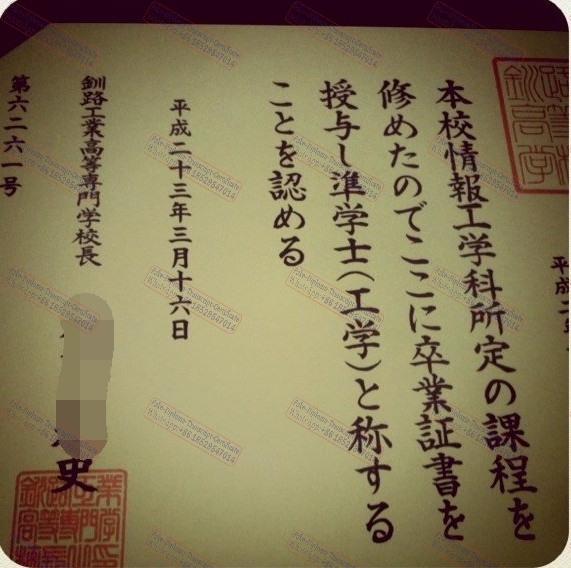 平成二
本校情報工学科所定の課程を
修めたのでここに卒業証書を
授与し準学士（工学）と称する
ことを認める
平成二十三年三月十六日
釧路工業高等専門学校長
史
第六二六一号
Fake-Diploma-Transcript-Certificate
Whatsapp:+86 18528547014